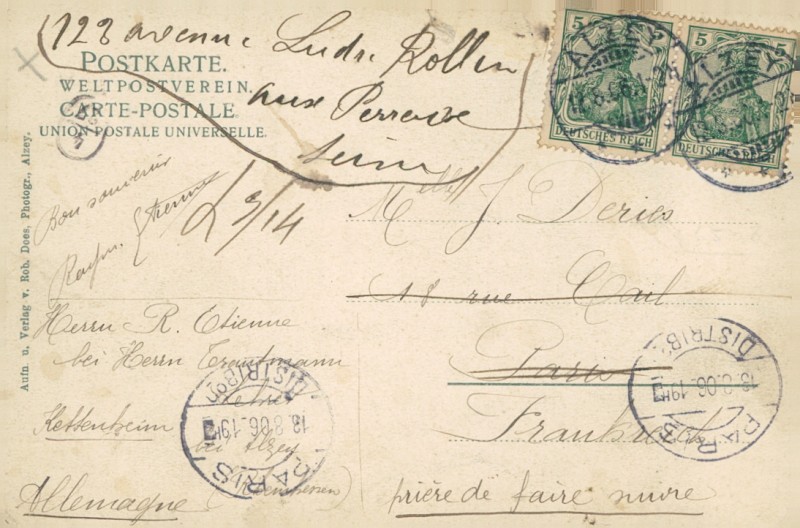 123 avenue Ledru Rollin
aux Perreux
Seine
POSTKARTE.
WELTPOSTVEREIN.
CARTE-POSTALE
UNION POSTALE UNIVERSELLE.
5 5 5
ALZEY
ALZEY
DEUTSCHES REICH
DEUTSCHES REICH
Aufn. u. Verlag v. Rob. Does, Photogr., Alzey.
Bon souvenir
Raym. Etienne
L 3/14
Melle J. Deries
18 rue Cail
Paris
Frankreich
prière de faire suivre
Herrn R. Etienne
bei Herrn Trautmann
Lehrer
Kettenheim
bei Alzey
Allemagne (Rheinhessen)
PARIS
13.8.06.19H
DISTRIBon
PARIS
13.8.06.19H
DISTRIB